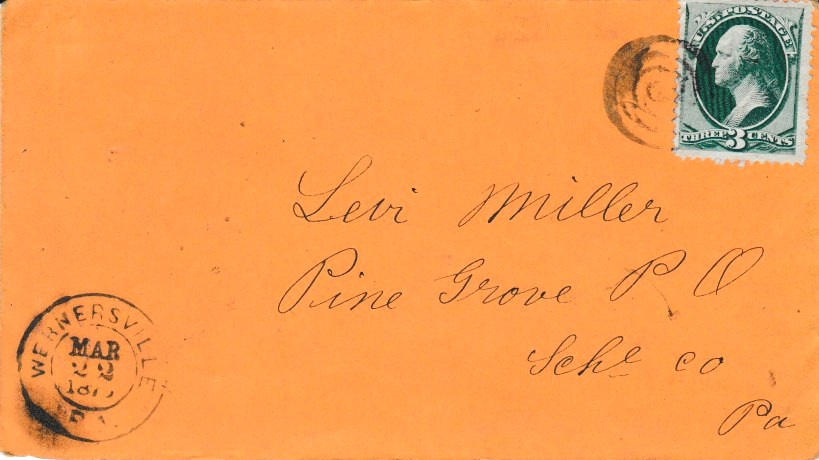 U.S. POSTAGE
THREE 3 CENTS
Levi Miller
Pine Grove P O
Schl co
Pa
WERNERSVILLE
MAR
22
PA.